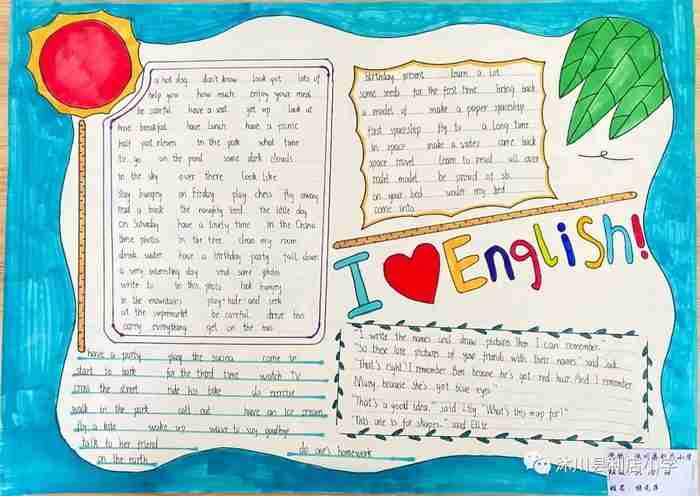 a hot dog don't know look out lots of
help you how much enjoy your meal
be careful have a seat get up look at
have breakfast have lunch have a picnic
half past eleven in the park what time
to go on the pond some dark clouds
in the sky over there look like
stay hungry on Friday play chess fly away
read a book the naughty bird the little day
on Saturday have a lovely time in the China
these photos in the tree clean my room
drink water have a birthday party fall down
a very interesting day send some photos
write to in this photo look hungry
in the mountains play hide and seek
at the supermarket be careful drive too
carry everything get on the bus
birthday present learn a lot
some seeds for the first time bring back
a model of make a paper spaceship
first spaceship fly to a long time
in space make a video came back
space travel learn to read all over
model be proud of sb.
on your bed under my bed
come into
I ❤ English!
"I write the names and draw pictures then I can remember."
"So these are pictures of your friends with their names." said Jack.
"That's right! I remember Ben because he's got red hair. And I remember
Mary because she's got blue eyes."
"That's a good idea," said Lily. "What's this map for?"
"This one is for shapes," said Ellie.
have a party play the come in
start to bark for the third time watch TV
cross the street ride his bike do exercise
walk in the park call out have an ice cream
fly a kite wake up want to say goodbye
talk to her friend do one's homework
on the earth
沐川县利店小学